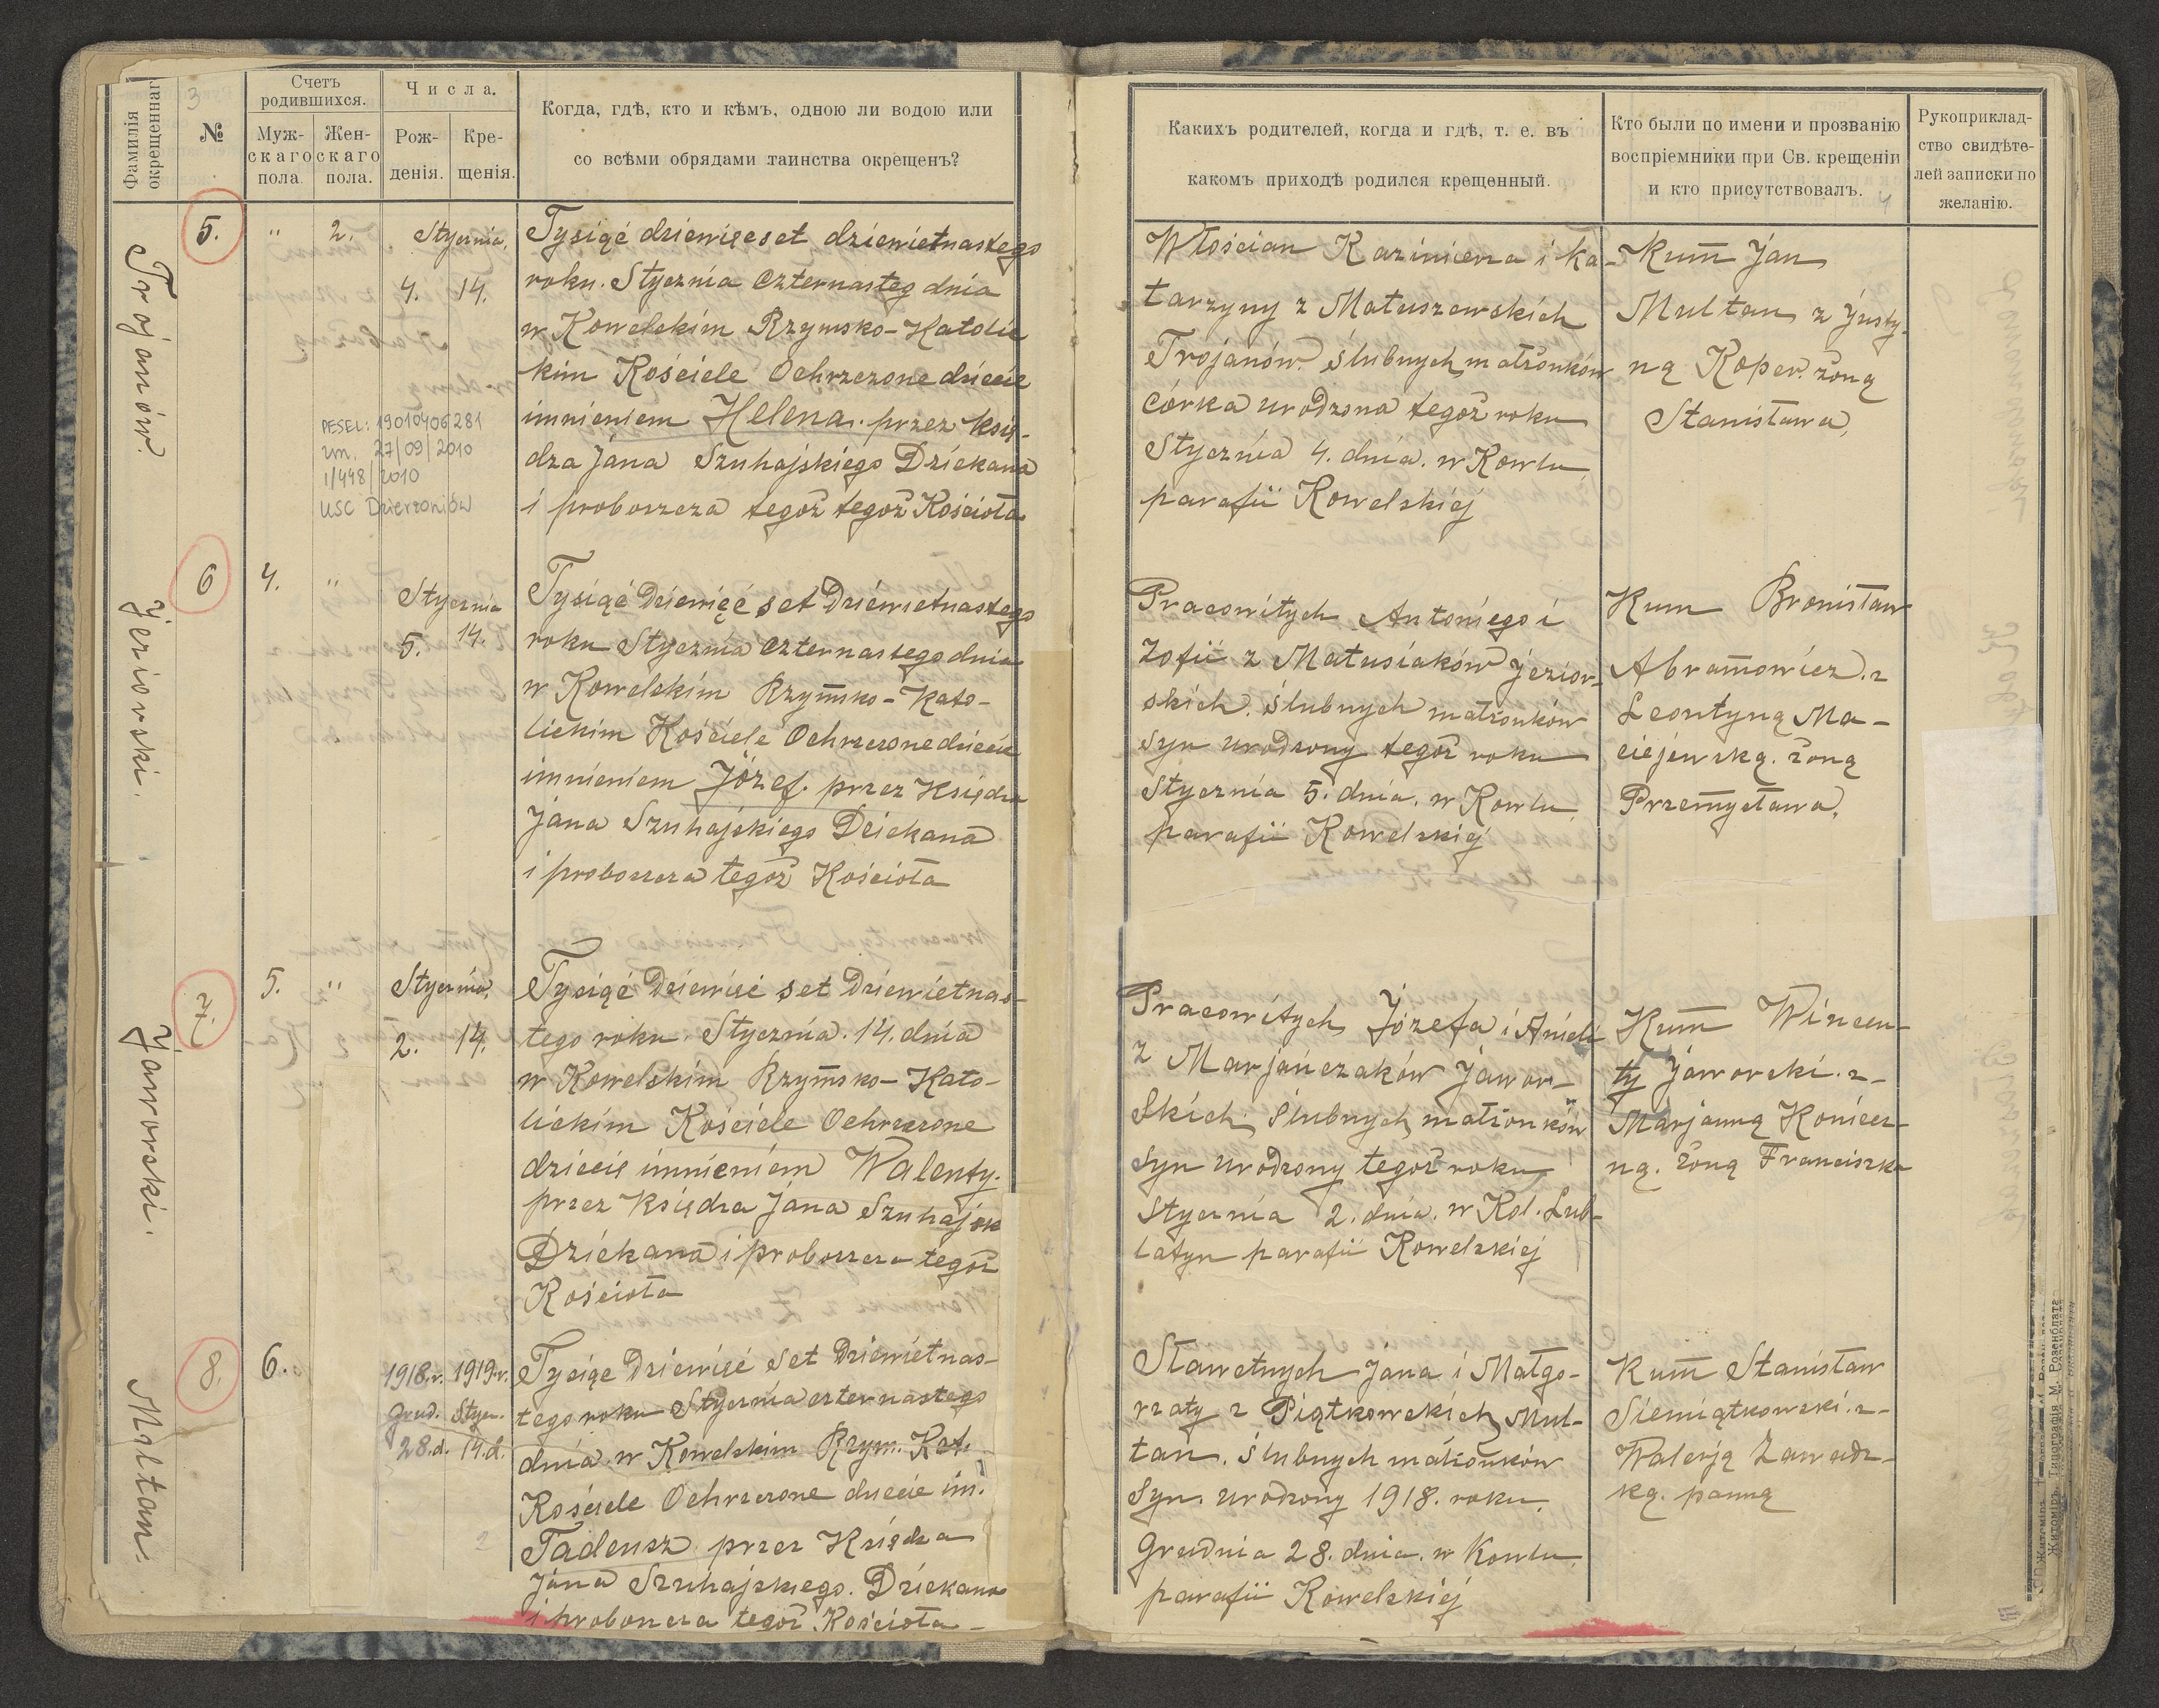 Фамилія
окрещеннаг
3
№
Счетъ
родившихся.
Муж-
скаго
пола.
Жен-
скаго
пола.
Числа.
Рож-
денія.
Кре-
щенія.
Когда, гдѣ, кто и кѣмъ, одною ли водою или
со всѣми обрядами таинства окрещенъ?
Trojanów.
5.
" 2.
Stycznia,
4. 14.
PESEL: 19010406281
zm. 27/09/2010
1/448/2010
USC Dzierżoniów
Tysiąć dziewięcset dziewietnastego
roku. Stycznia czternasteg dnia
w Kowelskim Rzymsko-Katolic
kim Kościele Ochrzczone dziecie
imnieniem Helena. przez Księ-
dza Jana Szuhajskiego Dziekana
i proboszcza tegoż tegoż Kościoła
Jeziorski.
6
4. "
Stycznia
5. 14.
Tysiąć Dziewięć set Dziewietnastego
roku Stycznia czternastego dnia
w Kowelskim Rzymsko-Kato-
lickim Kościele Ochrzczone dziecie
imnieniem Józef. przez Księdza
Jana Szuhajskiego Dziekana
i proboszcza tegoż Kościoła
Jaworski.
7.
5. "
Stycznia,
2. 14.
Tysiąć Dziewięć set Dziewietnas-
tego roku. Stycznia. 14. dnia
w Kowelskim Rzymsko-Kato-
lickim Kościele Ochrzczone
dziecię imnieniem Walenty.
przez Księdza Jana Szuhajsk
Dziekana i proboszcza tegoż
Kościoła
Multan.
8.
6.
1918.r. 1919.r.
Grud. Stycz.
28.d. 14.d.
Tysiąc Dziewięć set Dziewietnas-
tego roku Stycznia czternastego
dnia w Kowelskim Rzym. Kat.
Kościele Ochrzczone dziecie im.
Tadeusz przez Księdza
Jana Szuhajskiego. Dziekana
i proboszcza tegoż Kościoła
Какихъ родителей, когда и гдѣ, т. е. въ
какомъ приходѣ родился крещенный.
Кто были по имени и прозванію
воспріемники при Св. крещеніи
и кто присутствовалъ.
4
Рукоприклад-
ство свидѣте-
лей записки по
желанію.
Włościan Kazimierza i Ka-
tarzyny z Matuszewskich
Trojanów. ślubnych małżonków
córka urodzona tegoż roku
Stycznia 4. dnia. w Kowlu
parafii Kowelskiej
Kum Jan
Multan z Justy-
ną Koper. żoną
Stanisława,
Pracowitych Antoniego i
Zofii z Matusiaków Jezior-
skich. ślubnych małżonków
syn urodzony tegoż roku
Stycznia 5. dnia. w Kowlu,
parafii Kowelskiej
Kum Bronisław
Abramowicz. z
Leontyną Ma-
ciejewską. żoną
Przemysława,
Pracowitych Józefa i Anieli
z Marjańczaków Jawor-
skich, ślubnych małżonków
syn urodzony tegoż roku
Stycznia 2. dnia. w Kol. Lub-
latyn parafii Kowelskiej
Kum Wincen-
ty Jaworski. z-
Marjanną Koniecz-
ną. żoną Franciszka
Sławetnych Jana i Małgo-
rzaty z Piątkowskich Mul-
tan. ślubnych małżonków
syn. urodzony 1918. roku.
Grudnia 28. dnia. w Kowlu
parafii Kowelskiej
Kum Stanisław
Siemiątkowski. z-
Walerją Zawadz-
ką. panną
Житоміръ, Типографія М. Розенблата